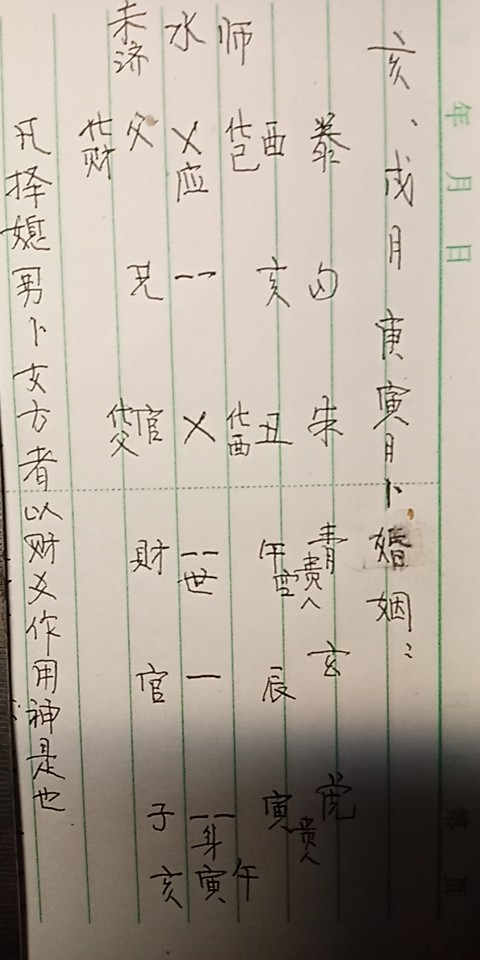 年 月 日
第 页
亥、戌月庚寅月卜婚姻：
勾 朱 青 玄 虎
贵人 贵人
师 酉 亥 丑 午 辰 寅
空
化巳 化酉 午
水 乂 -- 乂 -- — --
应 世 身 寅
未济 父 兄 官 财 官 子 亥
化财 化父
凡择媳男卜女方者以财爻作用神是也